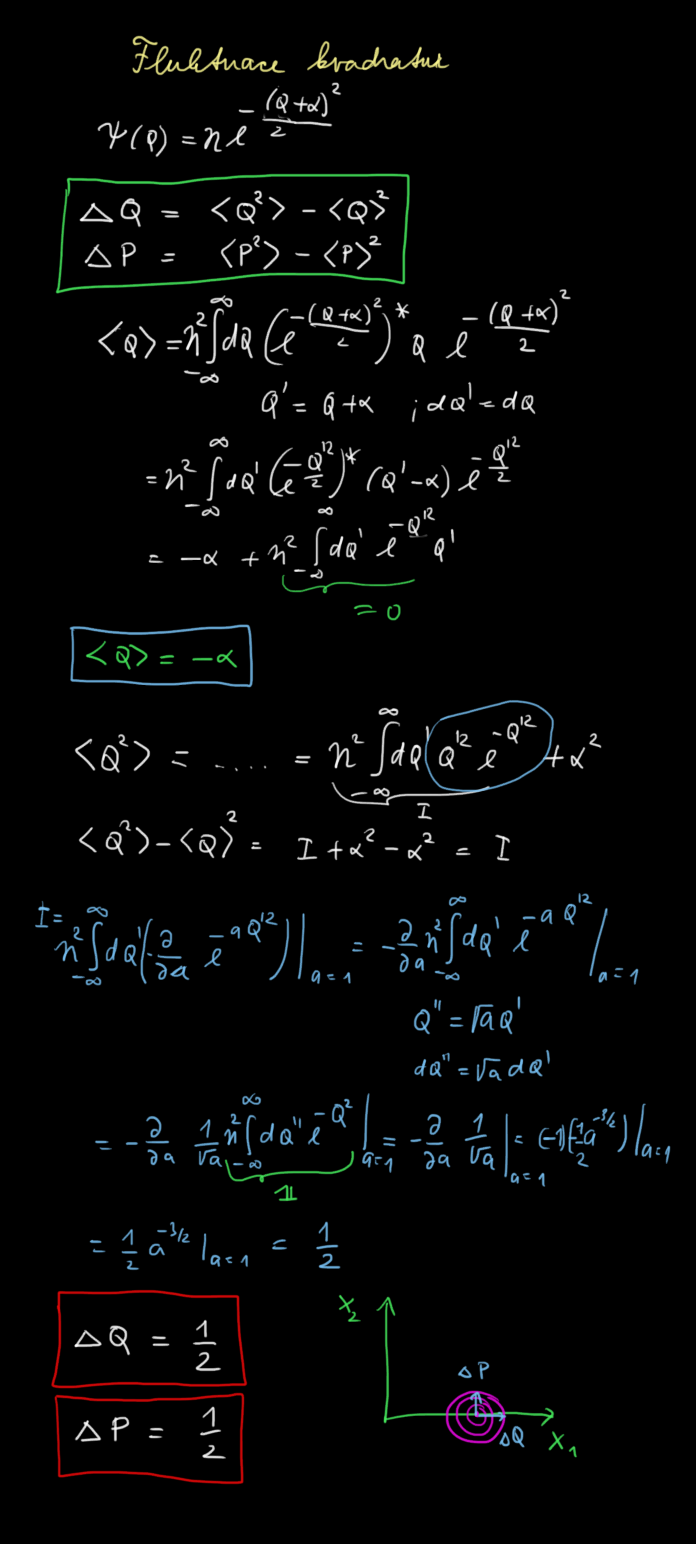 Fluktuace kvadratur
Ψ(Q) = n e^{-(Q+α)²/2}
△Q = <Q²> - <Q>²
△P = <P²> - <P>²
<Q> = n² ∫_{-∞}^{∞} dQ (e^{-(Q+α)²/2})* Q e^{-(Q+α)²/2}
Q' = Q+α ; dQ' = dQ
= n² ∫_{-∞}^{∞} dQ' (e^{-Q'²/2})* (Q'-α) e^{-Q'²/2}
= -α + n² ∫_{-∞}^{∞} dQ' e^{-Q'²} Q'
= 0
<Q> = -α
<Q²> = ..... = n² ∫_{-∞}^{∞} dQ' Q'² e^{-Q'²} + α²
I
<Q²> - <Q>² = I + α² - α² = I
I = n² ∫_{-∞}^{∞} dQ' (-∂/∂a e^{-aQ'²})|_{a=1} = -∂/∂a n² ∫_{-∞}^{∞} dQ' e^{-aQ'²}|_{a=1}
Q'' = √a Q'
dQ'' = √a dQ'
= -∂/∂a 1/√a n² ∫_{-∞}^{∞} dQ'' e^{-Q²}|_{a=1} = -∂/∂a 1/√a|_{a=1} = (-1)(-1/2 a^{-3/2})|_{a=1}
1
= 1/2 a^{-3/2}|_{a=1} = 1/2
△Q = 1/2
△P = 1/2
X₂
△P
△Q
X₁